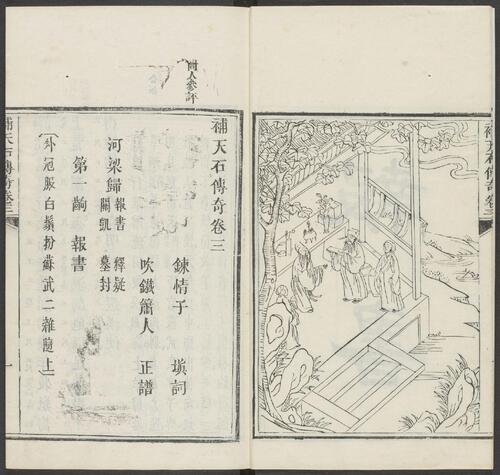 補天石傳奇卷三
補天石傳奇卷三
鍊情子 塡詞
吹鐵簫人 正譜
河梁歸 報書 釋疑
關凱 墓封
第一齣 報書
〔外冠服白鬚扮蘇武二雜隨上〕
補天石傳奇卷三 一